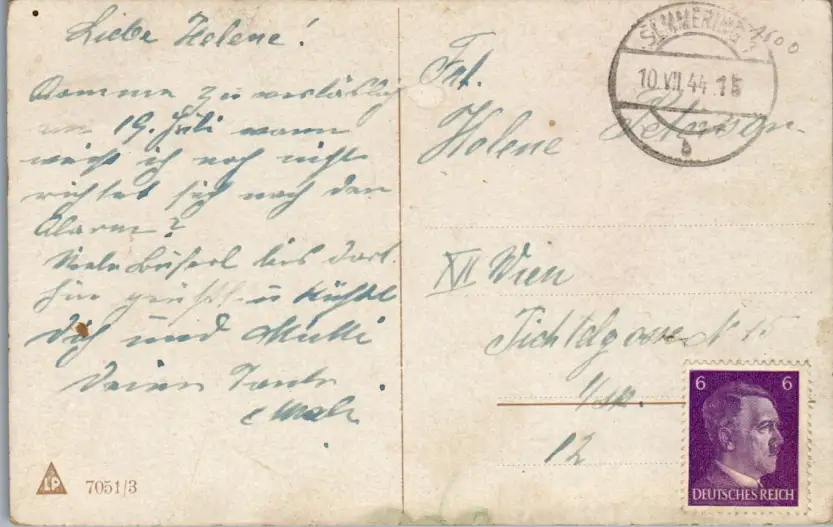 Liebe Helene!
Komme zu verläßlich
am 19. Juli wann
weiß ich noch nicht
richtet sich nach den
Alarm?
Viele Busserl bis dort
hin grüßt u küßt
Dich und Mutti
Deine Tante
LP 7051/3
SEMMERING
10.VII.44.15
b
1600
Frl.
Helene Petersen
XII Wien
Tichtelgasse N 15
12
6 6
DEUTSCHES REICH